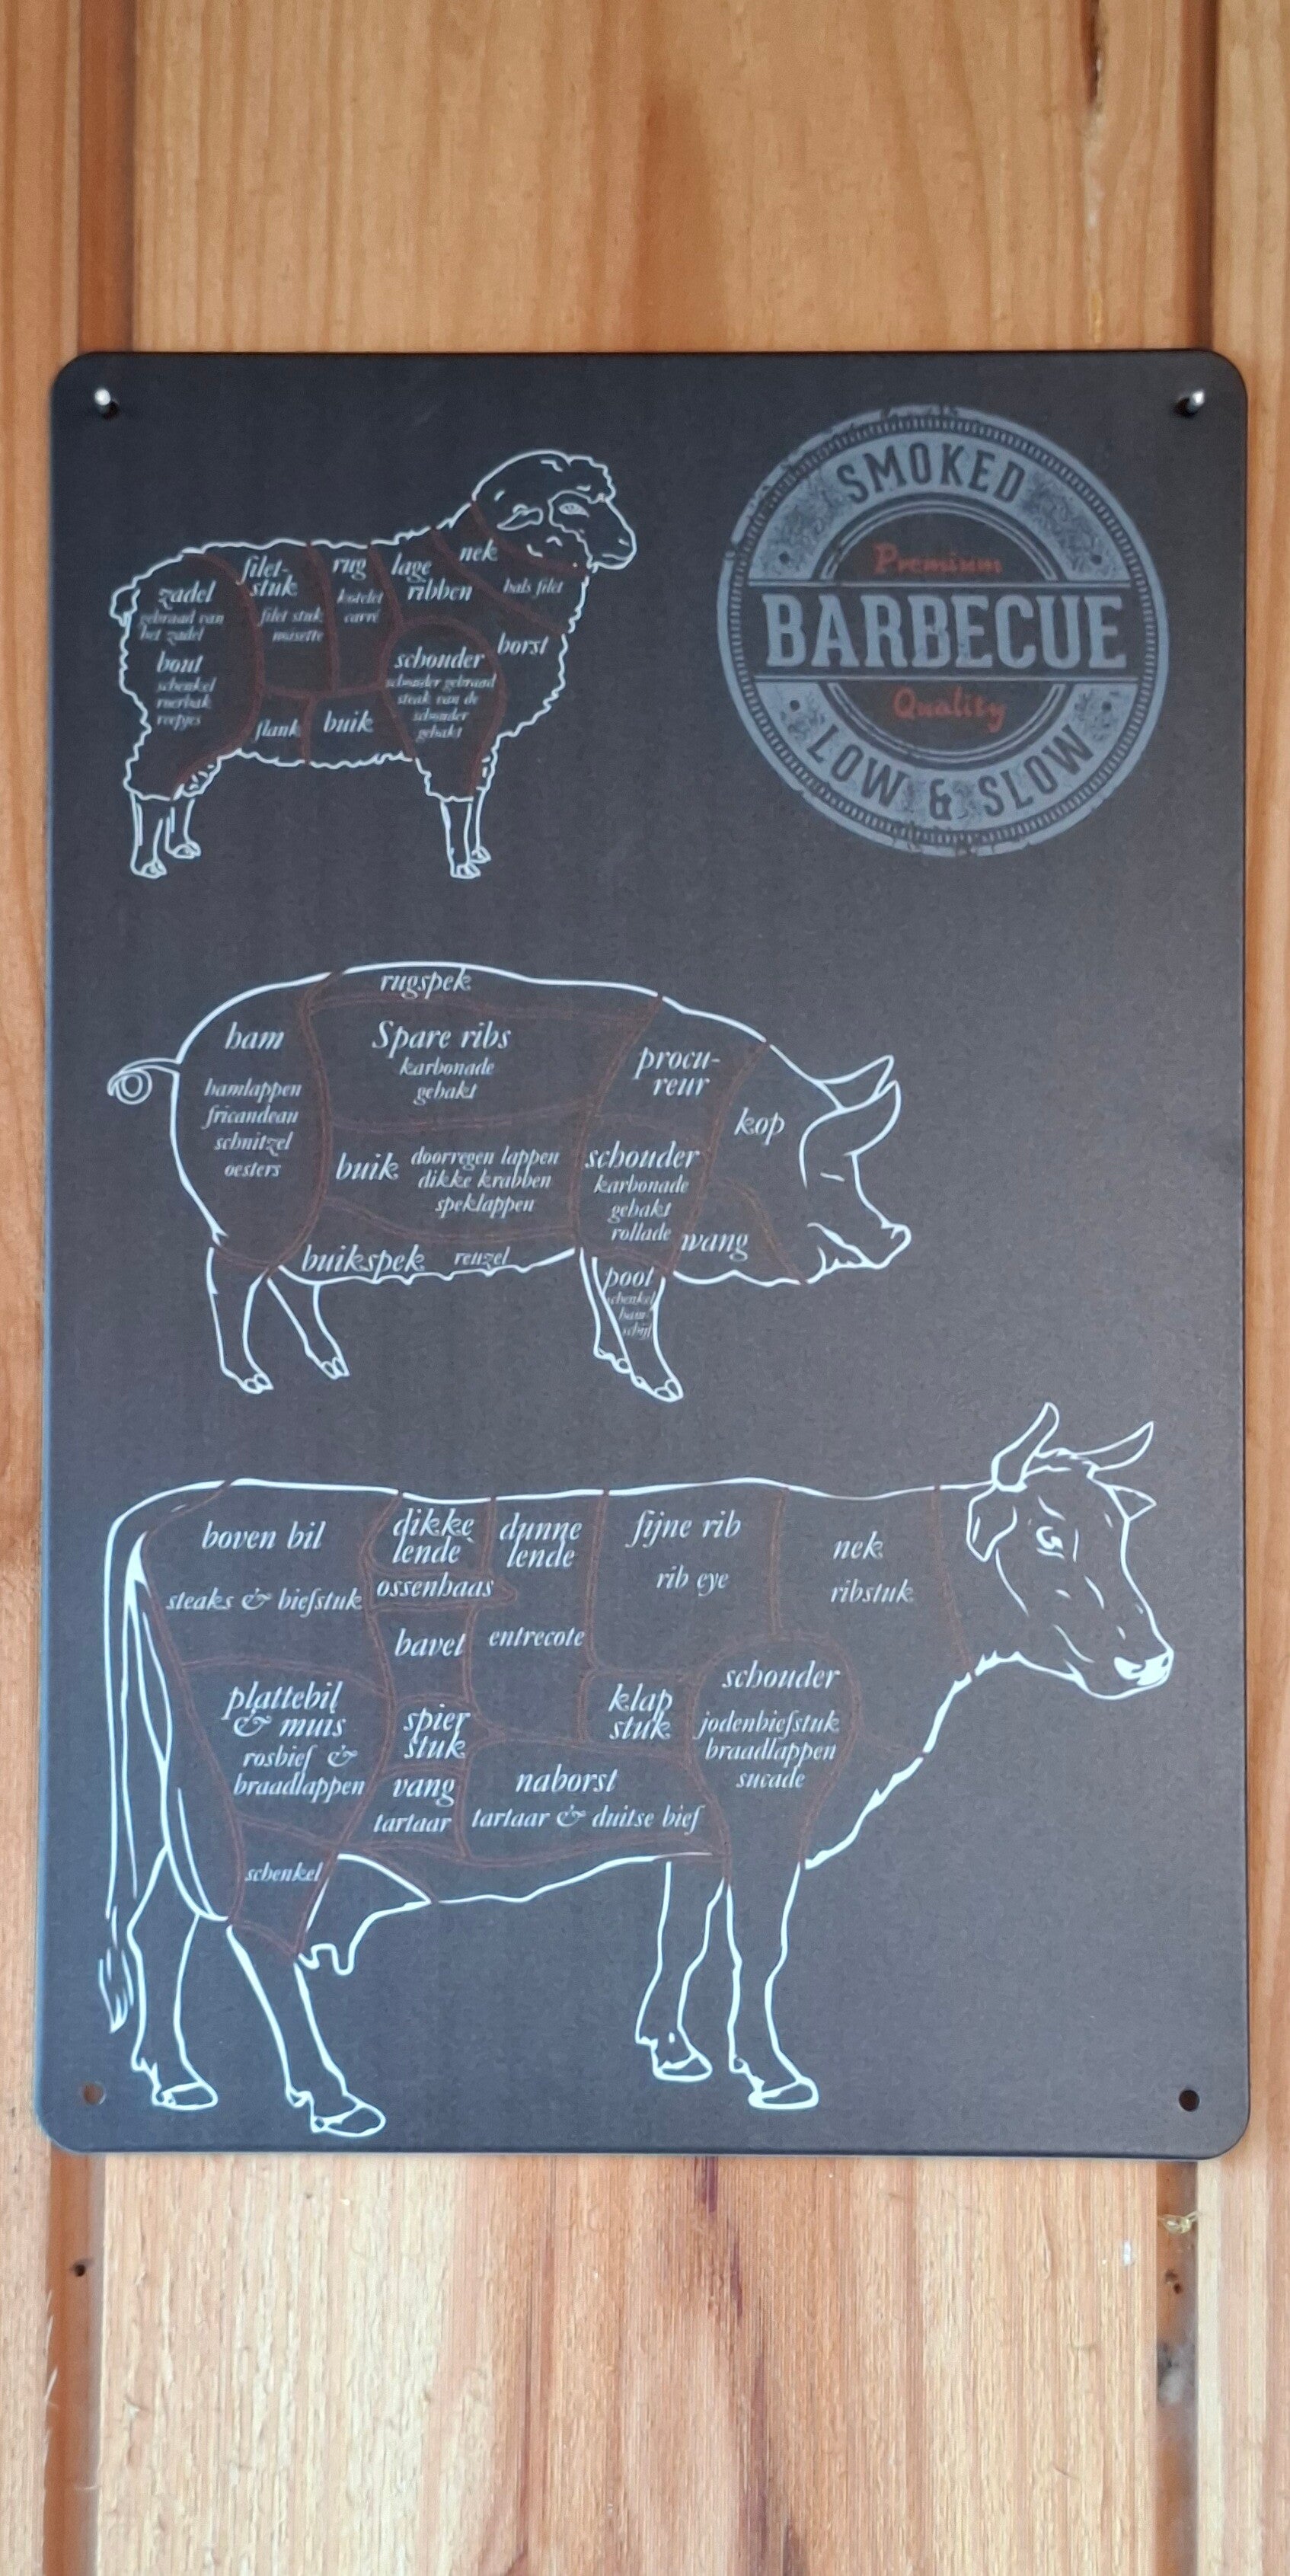 SMOKED
Premium
BARBECUE
Quality
LOW & SLOW
zadel
gebraad van
het zadel
bout
schenkel
roerbak
reepjes
filet-
stuk
filet stuk
noisette
rug
kotelet
carré
lage
ribben
nek
hals filet
borst
schouder
schouder gebraad
steak van de
schouder
gehakt
flank
buik
rugspek
ham
hamlappen
fricandeau
schnitzel
oesters
Spare ribs
karbonade
gehakt
procu-
reur
kop
buik
doorregen lappen
dikke krabben
speklappen
schouder
karbonade
gehakt
rollade
wang
buikspek
reuzel
poot
schenkel
ham-
schijf
boven bil
steaks & biefstuk
dikke
lende
dunne
lende
ossenhaas
bavet
entrecote
fijne rib
rib eye
nek
ribstuk
plattebil
& muis
rosbief &
braadlappen
spier
stuk
klap
stuk
schouder
jodenbiefstuk
braadlappen
sucade
vang
tartaar
naborst
tartaar & duitse bief
schenkel